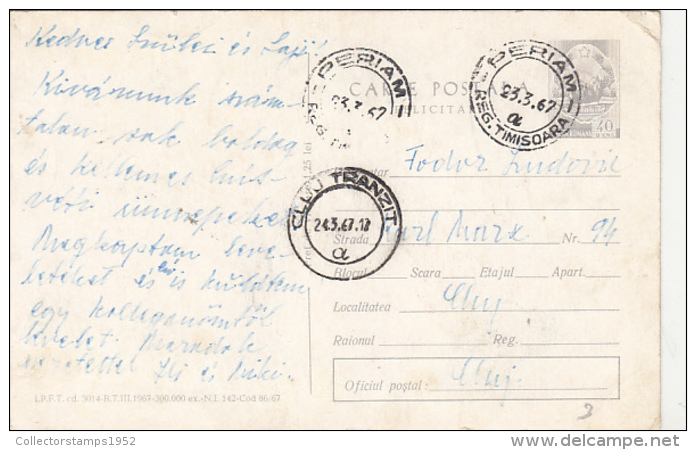 Kedves Szülei és Laji!
Kivánunk szám-
talan sok boldog
és kellemes húsvéti ünnepeket
Megkaptam leve-
leteket és én is küldtem
egy kolleganőmtől
levelet. Maradok
szeretettel Ili és Miki.
CARTE POSTALA
FELICITARE
PERIAM
23.3.67
REG. TIMISOARA
PERIAM
23.3.67
REG. TIMISOARA
40
Fodor Ludovic
CLUJ TRANZIT
24.3.67.18
Strada Karl Marx Nr. 94
Blocul Scara Etajul Apart.
Localitatea Cluj
Raionul Reg.
Oficiul poștal: Cluj.
I.P.F.T. cd. 3014-B.T.III.1967-300.000 ex.-N.I. 142-Cod 86/67
3
Collectorstamps1952
delcampe.net